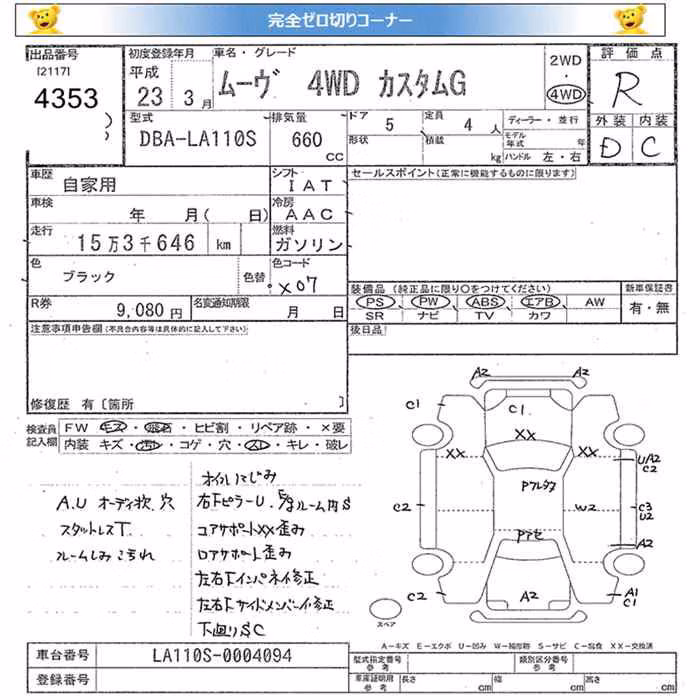 完全ゼロ切りコーナー
出品番号
[2117]
4353
初度登録年月
平成
23 3月
車名・グレード
ムーヴ 4WD カスタムG
2WD
・
4WD
評価点
R
外装 内装
D C
型式
DBA-LA110S
排気量
660
CC
ドア 5
形状
定員 4 人
積載 kg
ディーラー・並行
モデル年式 年
ハンドル 左・右
車歴
自家用
シフト
IAT
車検
年 月( 日)
冷房
AAC
走行
15万3千646 km
燃料
ガソリン
色
ブラック
色替
色コード
X07
R券
9,080円
名変通知期限
月 日
セールスポイント(正常に機能するものに限ります)
装備品 (純正品に限り○をつけてください)
PS PW ABS エアB AW
SR ナビ TV カワ
新車保証書
有・無
後日品
注意事項申告欄(不具合内容等は具体的に記入して下さい)
修復歴 有〔箇所 〕
検査員
記入欄
FW キズ・飛石・ヒビ割・リペア跡・×要
内装 キズ・汚レ・コゲ・穴・スレ・キレ・破レ
A.U オーディオ欠. 穴
スタットレスT
ルームしみこちれ
オイルにじみ
コアサポートXX歪み
ロアサポート歪み
左右Fインパネイ修正
左右Fサイドメンバーイ修正
下回りSC
A2 A2
C1 C1
XX
XX XX
U/A2
C2
Pアルタス
C2 W2 C3
U2
A2
C2 A2 A1
C1
スペア
A－キズ E－エクボ U－凹み W－補修跡 S－サビ C－腐食 XX－交換済
車台番号
LA110S-0004094
登録番号
型式指定番号
参考
類別区分番号
参考
車庫証明用
参考
長さ cm 幅 cm 高さ cm